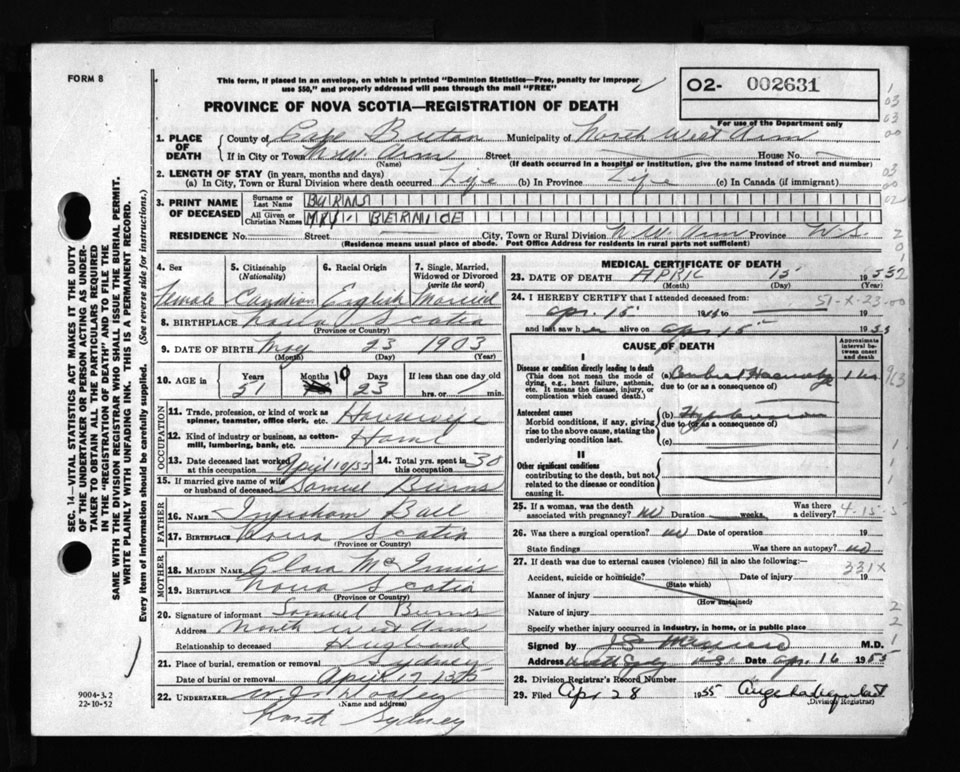 FORM 8
This form, if placed in an envelope, on which is printed "Dominion Statistics—Free, penalty for improper
use $50," and properly addressed will pass through the mail "FREE"
PROVINCE OF NOVA SCOTIA—REGISTRATION OF DEATH
02- 002631
For use of the Department only
1. PLACE OF DEATH County of Cape Breton Municipality of North West Arm
If in City or Town N.W. Arm Street House No.
(Name) (If death occurred in a hospital or institution, give the name instead of street and number)
2. LENGTH OF STAY (in years, months and days)
(a) In City, Town or Rural Division where death occurred Life (b) In Province Life (c) In Canada (if immigrant)
3. PRINT NAME OF DECEASED
Surname or Last Name BURNS
All Given or Christian Names BERNICE
RESIDENCE No. Street City, Town or Rural Division N.W. Arm Province N.S.
(Residence means usual place of abode. Post Office Address for residents in rural parts not sufficient)
4. Sex 5. Citizenship (Nationality) 6. Racial Origin 7. Single, Married, Widowed or Divorced (write the word)
Female Canadian English Married
8. BIRTHPLACE Nova Scotia
(Province or Country)
9. DATE OF BIRTH May 23 1903
(Month) (Day) (Year)
10. AGE in Years Months Days If less than one day old
51 10 23 hrs. or min.
OCCUPATION
11. Trade, profession, or kind of work as spinner, teamster, office clerk, etc. Housewife
12. Kind of industry or business, as cotton-mill, lumbering, bank, etc. Home
13. Date deceased last worked at this occupation April 10/55 14. Total yrs. spent in this occupation 30
15. If married give name of wife or husband of deceased Samuel Burns
FATHER
16. NAME Ingraham Ball
17. BIRTHPLACE Nova Scotia
(Province or Country)
MOTHER
18. MAIDEN NAME Clara McInnis
19. BIRTHPLACE Nova Scotia
(Province or Country)
20. Signature of informant Samuel Burns
Address North West Arm
Relationship to deceased Husband
21. Place of burial, cremation or removal Sydney
Date of burial or removal April 17
22. UNDERTAKER W.J. Dooley
(Name and address)
North Sydney
MEDICAL CERTIFICATE OF DEATH
23. DATE OF DEATH APRIL 15 19 55
(Month) (Day)
24. I HEREBY CERTIFY that I attended deceased from: 51-X-23-00
Apr. 15 19 to 19
and last saw her alive on Apr 15 19 55
CAUSE OF DEATH
Approximate interval between onset and death
I
Disease or condition directly leading to death
(This does not mean the mode of dying, e.g., heart failure, asthenia, etc. It means the disease, injury, or complication which caused death.)
(a) Cerebral Haemorrhage
due to (or as a consequence of)
Antecedent causes
Morbid conditions, if any, giving rise to the above cause, stating the underlying condition last.
(b) Hypertension
due to (or as a consequence of)
(c)
II
Other significant conditions
contributing to the death, but not related to the disease or condition causing it.
25. If a woman, was the death associated with pregnancy? no Duration weeks. Was there a delivery? 4-15-5
26. Was there a surgical operation? no Date of operation 19
State findings Was there an autopsy? no
27. If death was due to external causes (violence) fill in also the following: 331X
Accident, suicide or homicide? Date of injury 19
(State which)
Manner of injury
(How sustained)
Nature of injury
Specify whether injury occurred in industry, in home, or in public place
Signed by M.D.
Address N.S. Date Apr. 16 1955
28. Division Registrar's Record Number
29. Filed Apr 28 1955
(Division Registrar)
SEC. 14—VITAL STATISTICS ACT MAKES IT THE DUTY
OF THE UNDERTAKER OR PERSON ACTING AS UNDER-
TAKER TO OBTAIN ALL THE PARTICULARS REQUIRED
IN THE "REGISTRATION OF DEATH" AND TO FILE THE
SAME WITH THE DIVISION REGISTRAR WHO SHALL ISSUE THE BURIAL PERMIT.
WRITE PLAINLY WITH UNFADING INK. THIS IS A PERMANENT RECORD.
Every item of information should be carefully supplied. (See reverse side for instructions.)
9004-3.2
22-10-52